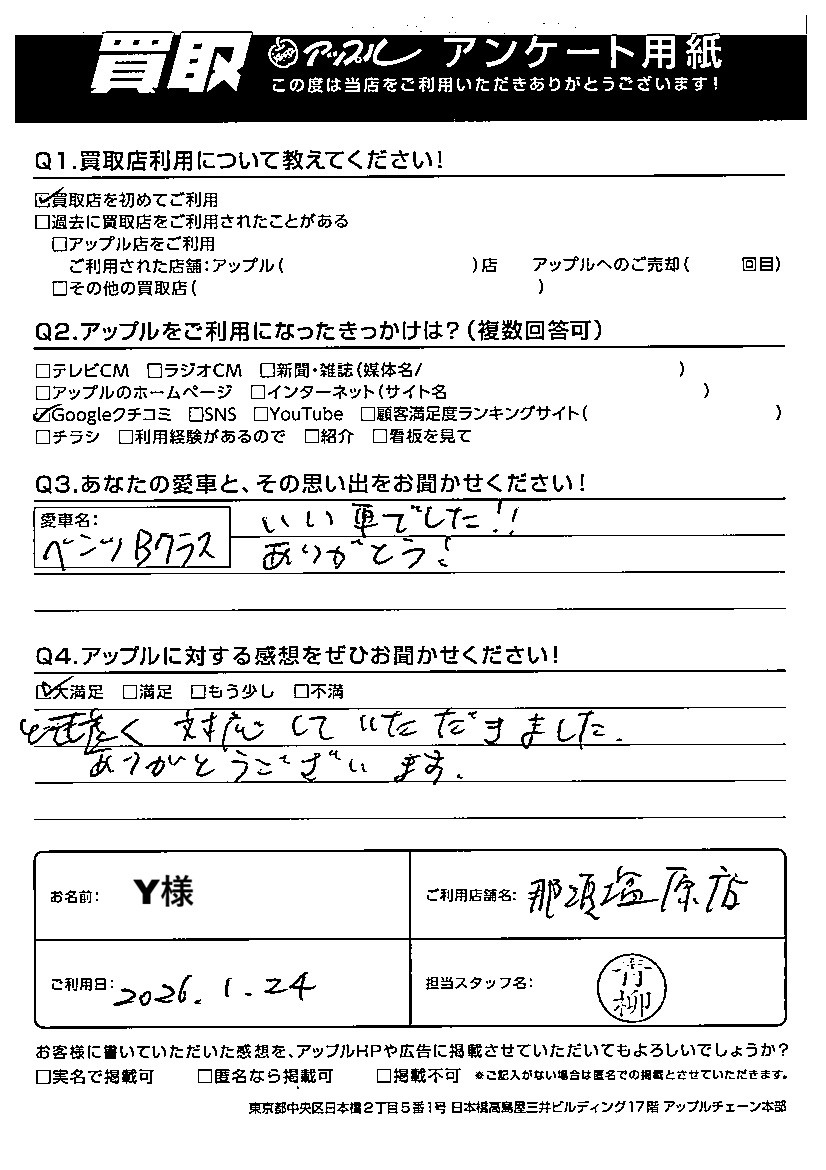 買取 アップル アンケート用紙
この度は当店をご利用いただきありがとうございます!
Q1.買取店利用について教えてください!
☑買取店を初めてご利用
□過去に買取店をご利用されたことがある
□アップル店をご利用
ご利用された店舗:アップル( )店 アップルへのご売却( 回目)
□その他の買取店( )
Q2.アップルをご利用になったきっかけは?(複数回答可)
□テレビCM □ラジオCM □新聞・雑誌(媒体名/ )
□アップルのホームページ □インターネット(サイト名 )
☑Googleクチコミ □SNS □YouTube □顧客満足度ランキングサイト( )
□チラシ □利用経験があるので □紹介 □看板を見て
Q3.あなたの愛車と、その思い出をお聞かせください!
愛車名:
ベンツBクラス
いい車でした!!
ありがとう!
Q4.アップルに対する感想をぜひお聞かせください!
☑大満足 □満足 □もう少し □不満
心地良く 対応していただきました.
ありがとうございます.
お名前: Y様
ご利用店舗名: 那須塩原店
ご利用日: 2026.1.24
担当スタッフ名: 青柳
お客様に書いていただいた感想を、アップルHPや広告に掲載させていただいてもよろしいでしょうか?
□実名で掲載可 □匿名なら掲載可 □掲載不可 ※ご記入がない場合は匿名での掲載とさせていただきます。
東京都中央区日本橋2丁目5番1号 日本橋髙島屋三井ビルディング17階 アップルチェーン本部